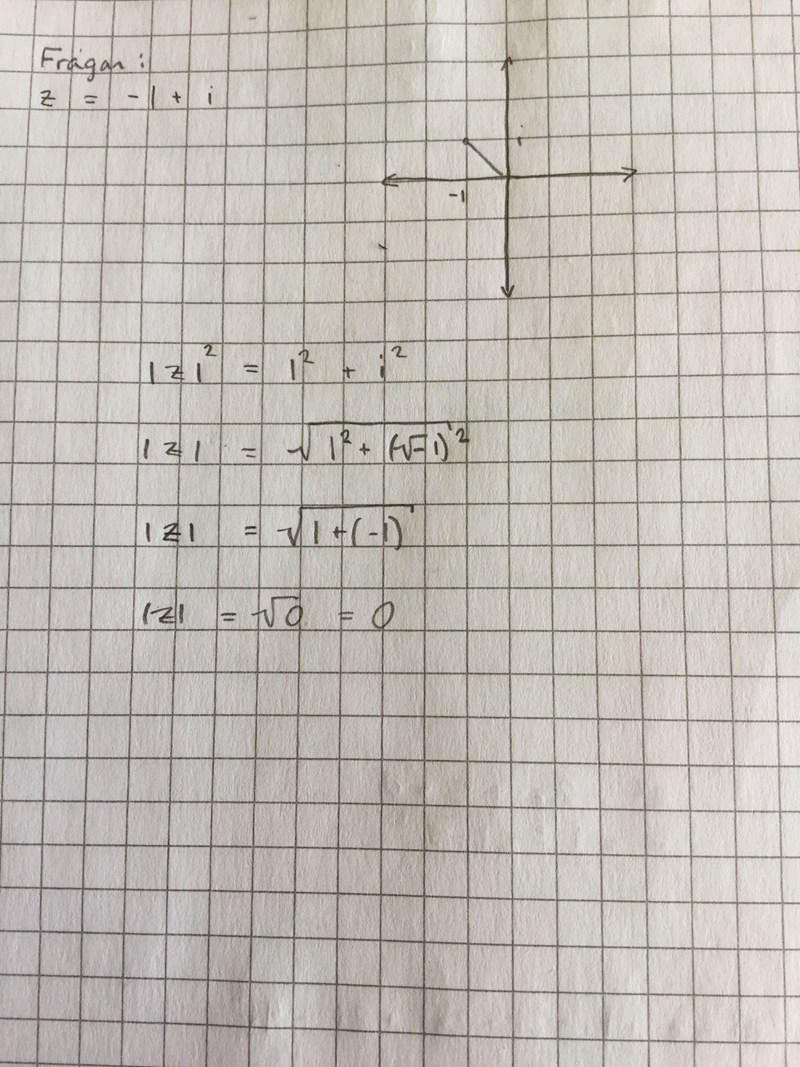 Frågan:
z = -1 + i
i
-1
|z|² = 1² + i²
|z| = √(1² + (√-1)²)
|z| = √(1 + (-1))
|z| = √0 = 0